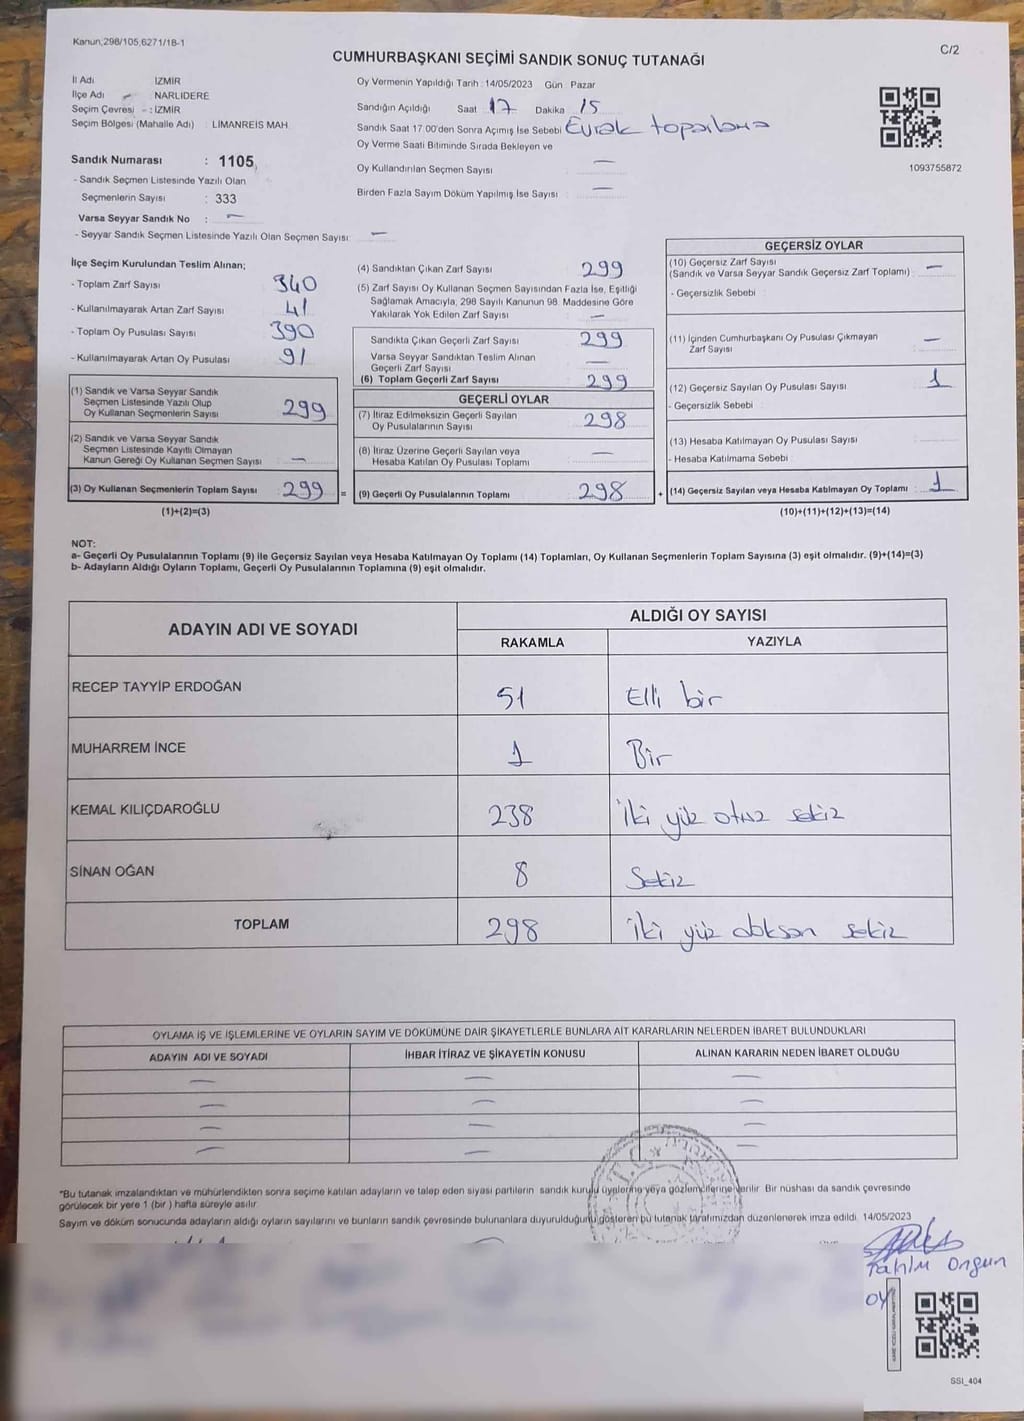 Kanun;298/105,6271/18-1
C/2
CUMHURBAŞKANI SEÇİMİ SANDIK SONUÇ TUTANAĞI
İl Adı İZMİR
İlçe Adı NARLIDERE
Seçim Çevresi : İZMİR
Seçim Bölgesi (Mahalle Adı) : LİMANREİS MAH.
Sandık Numarası : 1105
- Sandık Seçmen Listesinde Yazılı Olan
Seçmenlerin Sayısı : 333
Varsa Seyyar Sandık No : —
- Seyyar Sandık Seçmen Listesinde Yazılı Olan Seçmen Sayısı: —
Oy Vermenin Yapıldığı Tarih : 14/05/2023 Gün : Pazar
Sandığın Açıldığı Saat 17 Dakika 15
Sandık Saat 17.00'den Sonra Açımış İse Sebebi Evrak toparlama
Oy Verme Saati Bitiminde Sırada Bekleyen ve
Oy Kullandırılan Seçmen Sayısı —
Birden Fazla Sayım Döküm Yapılmış İse Sayısı —
1093755872
İlçe Seçim Kurulundan Teslim Alınan;
- Toplam Zarf Sayısı 340
- Kullanılmayarak Artan Zarf Sayısı 41
- Toplam Oy Pusulası Sayısı 390
- Kullanılmayarak Artan Oy Pusulası 91
(1) Sandık ve Varsa Seyyar Sandık
Seçmen Listesinde Yazılı Olup
Oy Kullanan Seçmenlerin Sayısı 299
(2) Sandık ve Varsa Seyyar Sandık
Seçmen Listesinde Kayıtlı Olmayan
Kanun Gereği Oy Kullanan Seçmen Sayısı —
(3) Oy Kullanan Seçmenlerin Toplam Sayısı 299
(1)+(2)=(3)
(4) Sandıktan Çıkan Zarf Sayısı 299
(5) Zarf Sayısı Oy Kullanan Seçmen Sayısından Fazla İse, Eşitliği
Sağlamak Amacıyla, 298 Sayılı Kanunun 98. Maddesine Göre
Yakılarak Yok Edilen Zarf Sayısı —
Sandıkta Çıkan Geçerli Zarf Sayısı 299
Varsa Seyyar Sandıktan Teslim Alınan
Geçerli Zarf Sayısı —
(6) Toplam Geçerli Zarf Sayısı 299
GEÇERLİ OYLAR
(7) İtiraz Edilmeksizin Geçerli Sayılan
Oy Pusulalarının Sayısı 298
(8) İtiraz Üzerine Geçerli Sayılan veya
Hesaba Katılan Oy Pusulası Toplamı —
= (9) Geçerli Oy Pusulalarının Toplamı 298 +
GEÇERSİZ OYLAR
(10) Geçersiz Zarf Sayısı
(Sandık ve Varsa Seyyar Sandık Geçersiz Zarf Toplamı) —
- Geçersizlik Sebebi
(11) İçinden Cumhurbaşkanı Oy Pusulası Çıkmayan
Zarf Sayısı —
(12) Geçersiz Sayılan Oy Pusulası Sayısı 1
- Geçersizlik Sebebi
(13) Hesaba Katılmayan Oy Pusulası Sayısı
- Hesaba Katılmama Sebebi
(14) Geçersiz Sayılan veya Hesaba Katılmayan Oy Toplamı : 1
(10)+(11)+(12)+(13)=(14)
NOT:
a- Geçerli Oy Pusulalarının Toplamı (9) ile Geçersiz Sayılan veya Hesaba Katılmayan Oy Toplamı (14) Toplamları, Oy Kullanan Seçmenlerin Toplam Sayısına (3) eşit olmalıdır. (9)+(14)=(3)
b- Adayların Aldığı Oyların Toplamı, Geçerli Oy Pusulalarının Toplamına (9) eşit olmalıdır.
ADAYIN ADI VE SOYADI ALDIĞI OY SAYISI
RAKAMLA YAZIYLA
RECEP TAYYİP ERDOĞAN 51 Elli bir
MUHARREM İNCE 1 Bir
KEMAL KILIÇDAROĞLU 238 iki yüz otuz sekiz
SİNAN OĞAN 8 Sekiz
TOPLAM 298 iki yüz doksan sekiz
OYLAMA İŞ VE İŞLEMLERİNE VE OYLARIN SAYIM VE DÖKÜMÜNE DAİR ŞİKAYETLERLE BUNLARA AİT KARARLARIN NELERDEN İBARET BULUNDUKLARI
ADAYIN ADI VE SOYADI İHBAR İTİRAZ VE ŞİKAYETİN KONUSU ALINAN KARARIN NEDEN İBARET OLDUĞU
— — —
— — —
— — —
— — —
T.C.
"Bu tutanak imzalandıktan ve mühürlendikten sonra seçime katılan adayların ve talep eden siyasi partilerin sandık kurulu üyelerine veya gözlemcilerine verilir. Bir nüshası da sandık çevresinde
görülecek bir yere 1 (bir) hafta süreyle asılır.
Sayım ve döküm sonucunda adayların aldığı oyların sayılarını ve bunların sandık çevresinde bulunanlara duyurulduğunu gösteren bu tutanak tarafımızdan düzenlenerek imza edildi. 14/05/2023
Ongun
SSI_404